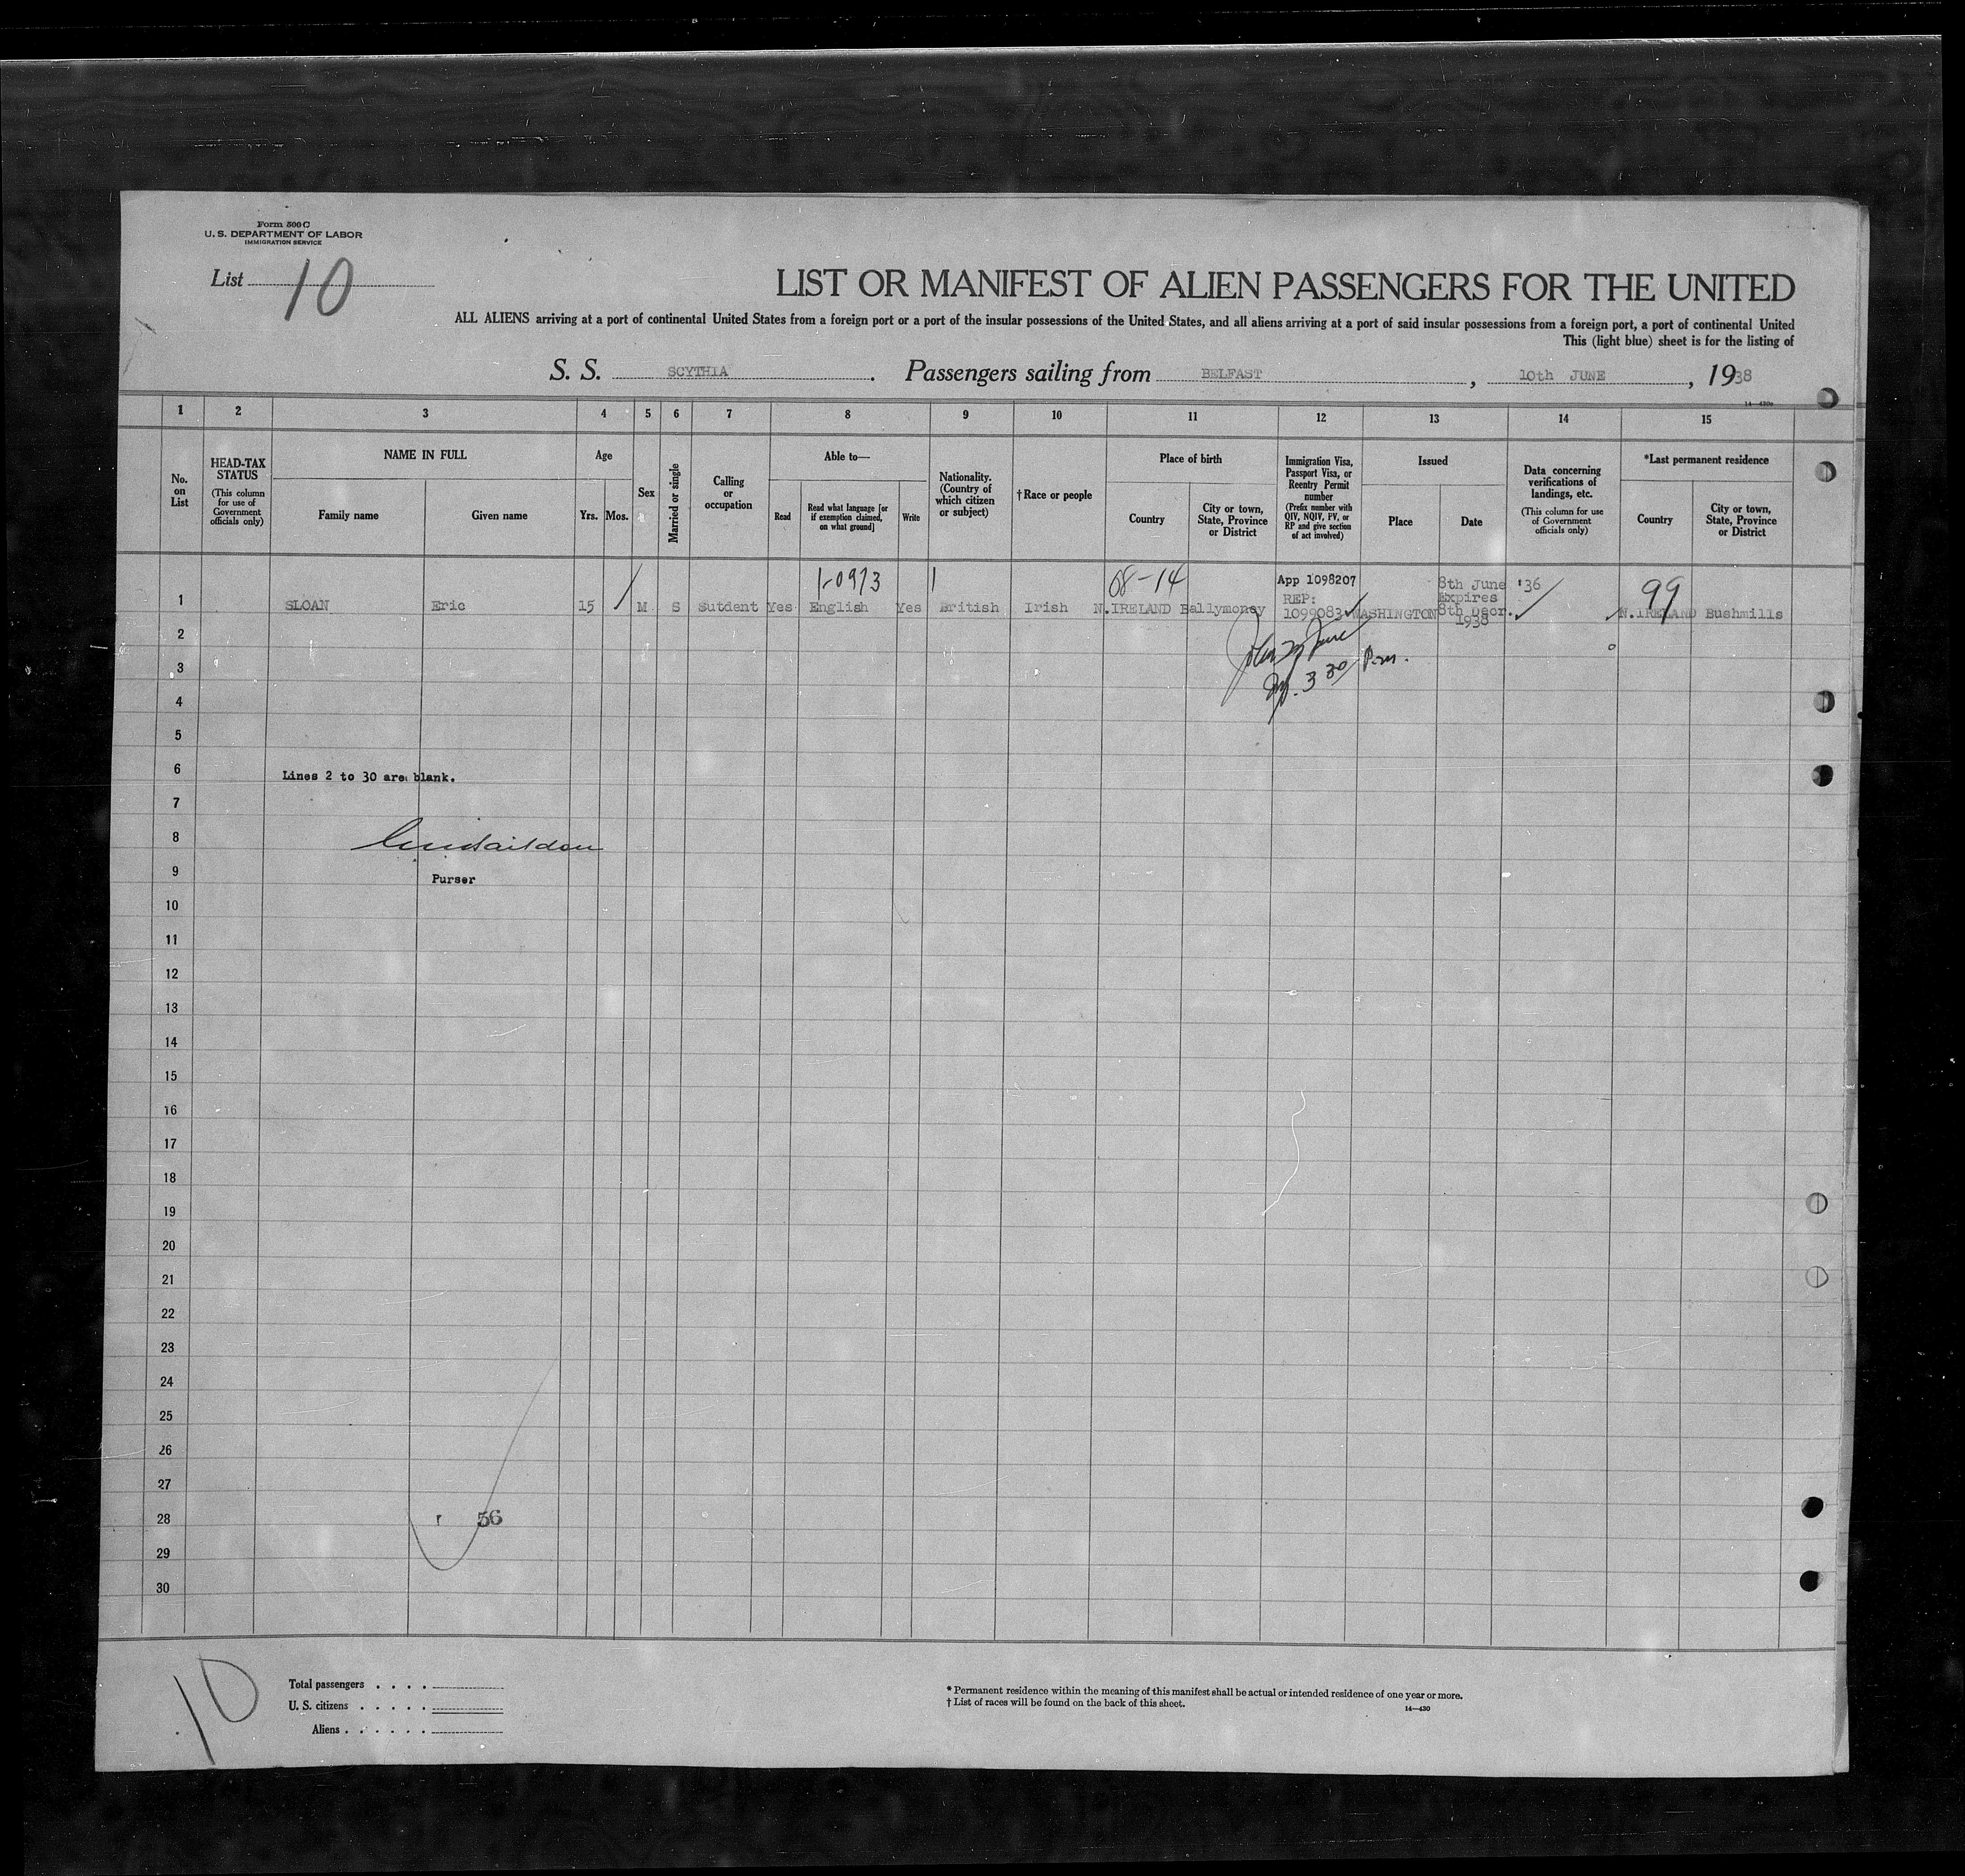 Form 500 C
U. S. DEPARTMENT OF LABOR
IMMIGRATION SERVICE
List 10
LIST OR MANIFEST OF ALIEN PASSENGERS FOR THE UNITED
ALL ALIENS arriving at a port of continental United States from a foreign port or a port of the insular possessions of the United States, and all aliens arriving at a port of said insular possessions from a foreign port, a port of continental United
This (light blue) sheet is for the listing of
S. S. SCYTHIA. Passengers sailing from BELFAST, 10th JUNE, 1938
14—430a
1 2 3 4 5 6 7 8 9 10 11 12 13 14 15
No. on List
HEAD-TAX STATUS
(This column for use of Government officials only)
NAME IN FULL
Family name
Given name
Age
Yrs.
Mos.
Sex
Married or single
Calling or occupation
Able to—
Read
Read what language [or if exemption claimed, on what ground]
Write
Nationality. (Country of which citizen or subject)
† Race or people
Place of birth
Country
City or town, State, Province or District
Immigration Visa, Passport Visa, or Reentry Permit number
(Prefix number with QIV, NQIV, PV, or RP and give section of act involved)
Issued
Place
Date
Data concerning verifications of landings, etc.
(This column for use of Government officials only)
*Last permanent residence
Country
City or town, State, Province or District
1-0973 1 68-14 App 1098207 8th June '36 99
REP: Expires
1 SLOAN Eric 15 M S Sutdent Yes English Yes British Irish N.IRELAND Ballymoney 1099083 WASHINGTON 8th Decr. N.IRELAND Bushmills
1938
2
3 3 30 P.m.
4
5
6 Lines 2 to 30 are blank.
7
8
9 Purser
10
11
12
13
14
15
16
17
18
19
20
21
22
23
24
25
26
27
28 56
29
30
10
Total passengers . . . .
U. S. citizens . . . . .
Aliens . . . . . .
* Permanent residence within the meaning of this manifest shall be actual or intended residence of one year or more.
† List of races will be found on the back of this sheet.
14—430